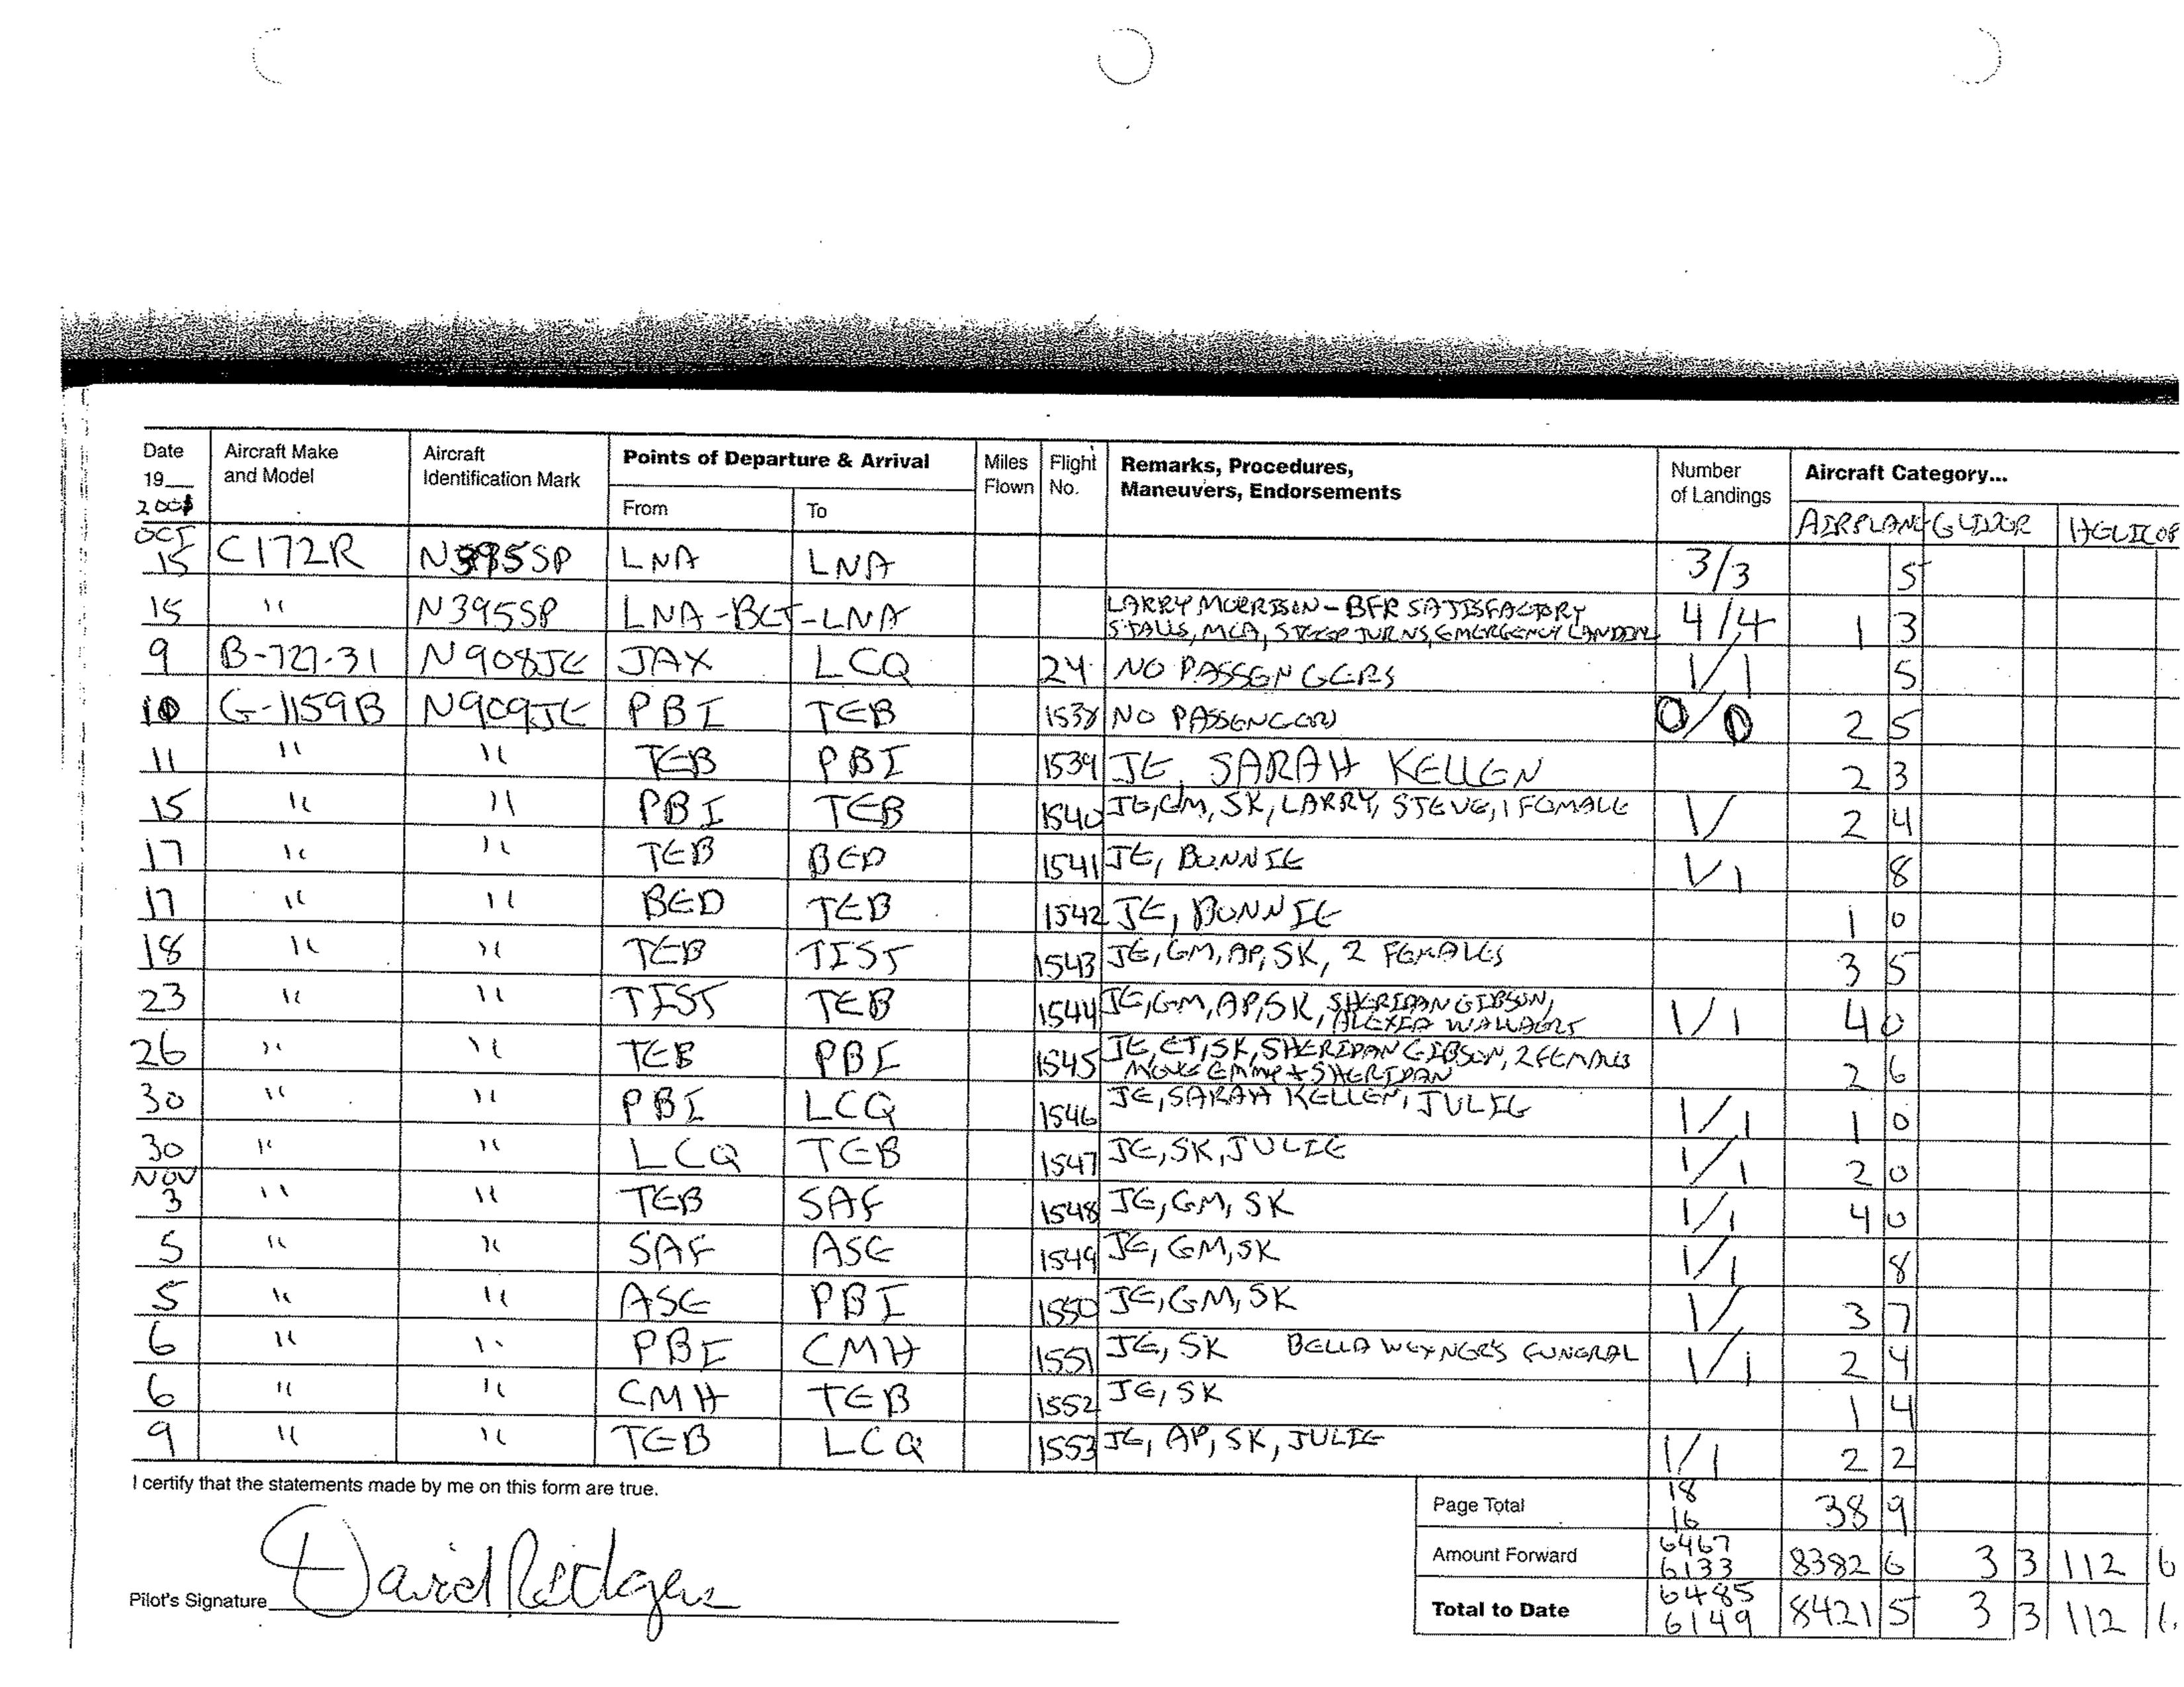 Date Aircraft Make Aircraft Points of Departure & Arrival Miles Flight Remarks, Procedures, Number Aircraft Category...
19__ and Model Identification Mark Flown No. Maneuvers, Endorsements of Landings
From To AIRPLANE GLIDER HELICOP
OCT
15 C172R N395SP LNA LNA 3/3 5
15 " N395SP LNA-BCT-LNA LARRY MORRISON - BFR SATISFACTORY 4/4 1 3
STALLS, MCA, STEEP TURNS, EMERGENCY LANDING
9 B-727-31 N908JE JAX LCQ 24 NO PASSENGERS 1/1 5
10 G-1159B N909JE PBI TEB 1538 NO PASSENGERS 0/0 2 5
11 " " TEB PBI 1539 JE, SARAH KELLEN 2 3
15 " " PBI TEB 1540 JE, GM, SK, LARRY, STEVE, 1 FEMALE 1/ 2 4
17 " " TEB BED 1541 JE, BONNIE 1/1 8
17 " " BED TEB 1542 JE, BONNIE 1 0
18 " " TEB TIST 1543 JE, GM, AP, SK, 2 FEMALES 3 5
23 " " TIST TEB 1544 JE, GM, AP, SK, SHERIDAN GIBSON, 1/1 4 0
26 " " TEB PBI 1545 JE, ET, SK, SHERIDAN GIBSON, 2 FEMALES 2 6
30 " " PBI LCQ 1546 JE, SARAH KELLEN, JULIE 1/1 1 0
30 " " LCQ TEB 1547 JE, SK, JULIE 1/1 2 0
NOV
3 " " TEB SAF 1548 JE, GM, SK 1/1 4 0
5 " " SAF ASE 1549 JE, GM, SK 1/1 8
5 " " ASE PBI 1550 JE, GM, SK 1/ 3 7
6 " " PBI CMH 1551 JE, SK BELLA WEXNER'S FUNERAL 1/1 2 4
6 " " CMH TEB 1552 JE, SK 1 4
9 " " TEB LCQ 1553 JE, AP, SK, JULIE 1/1 2 2
I certify that the statements made by me on this form are true.
Page Total 18 38 9
16
Amount Forward 6467 8382 6 3 3 112 6
6133
Pilot's Signature David Rodgers
Total to Date 6485 8421 5 3 3 112
6149